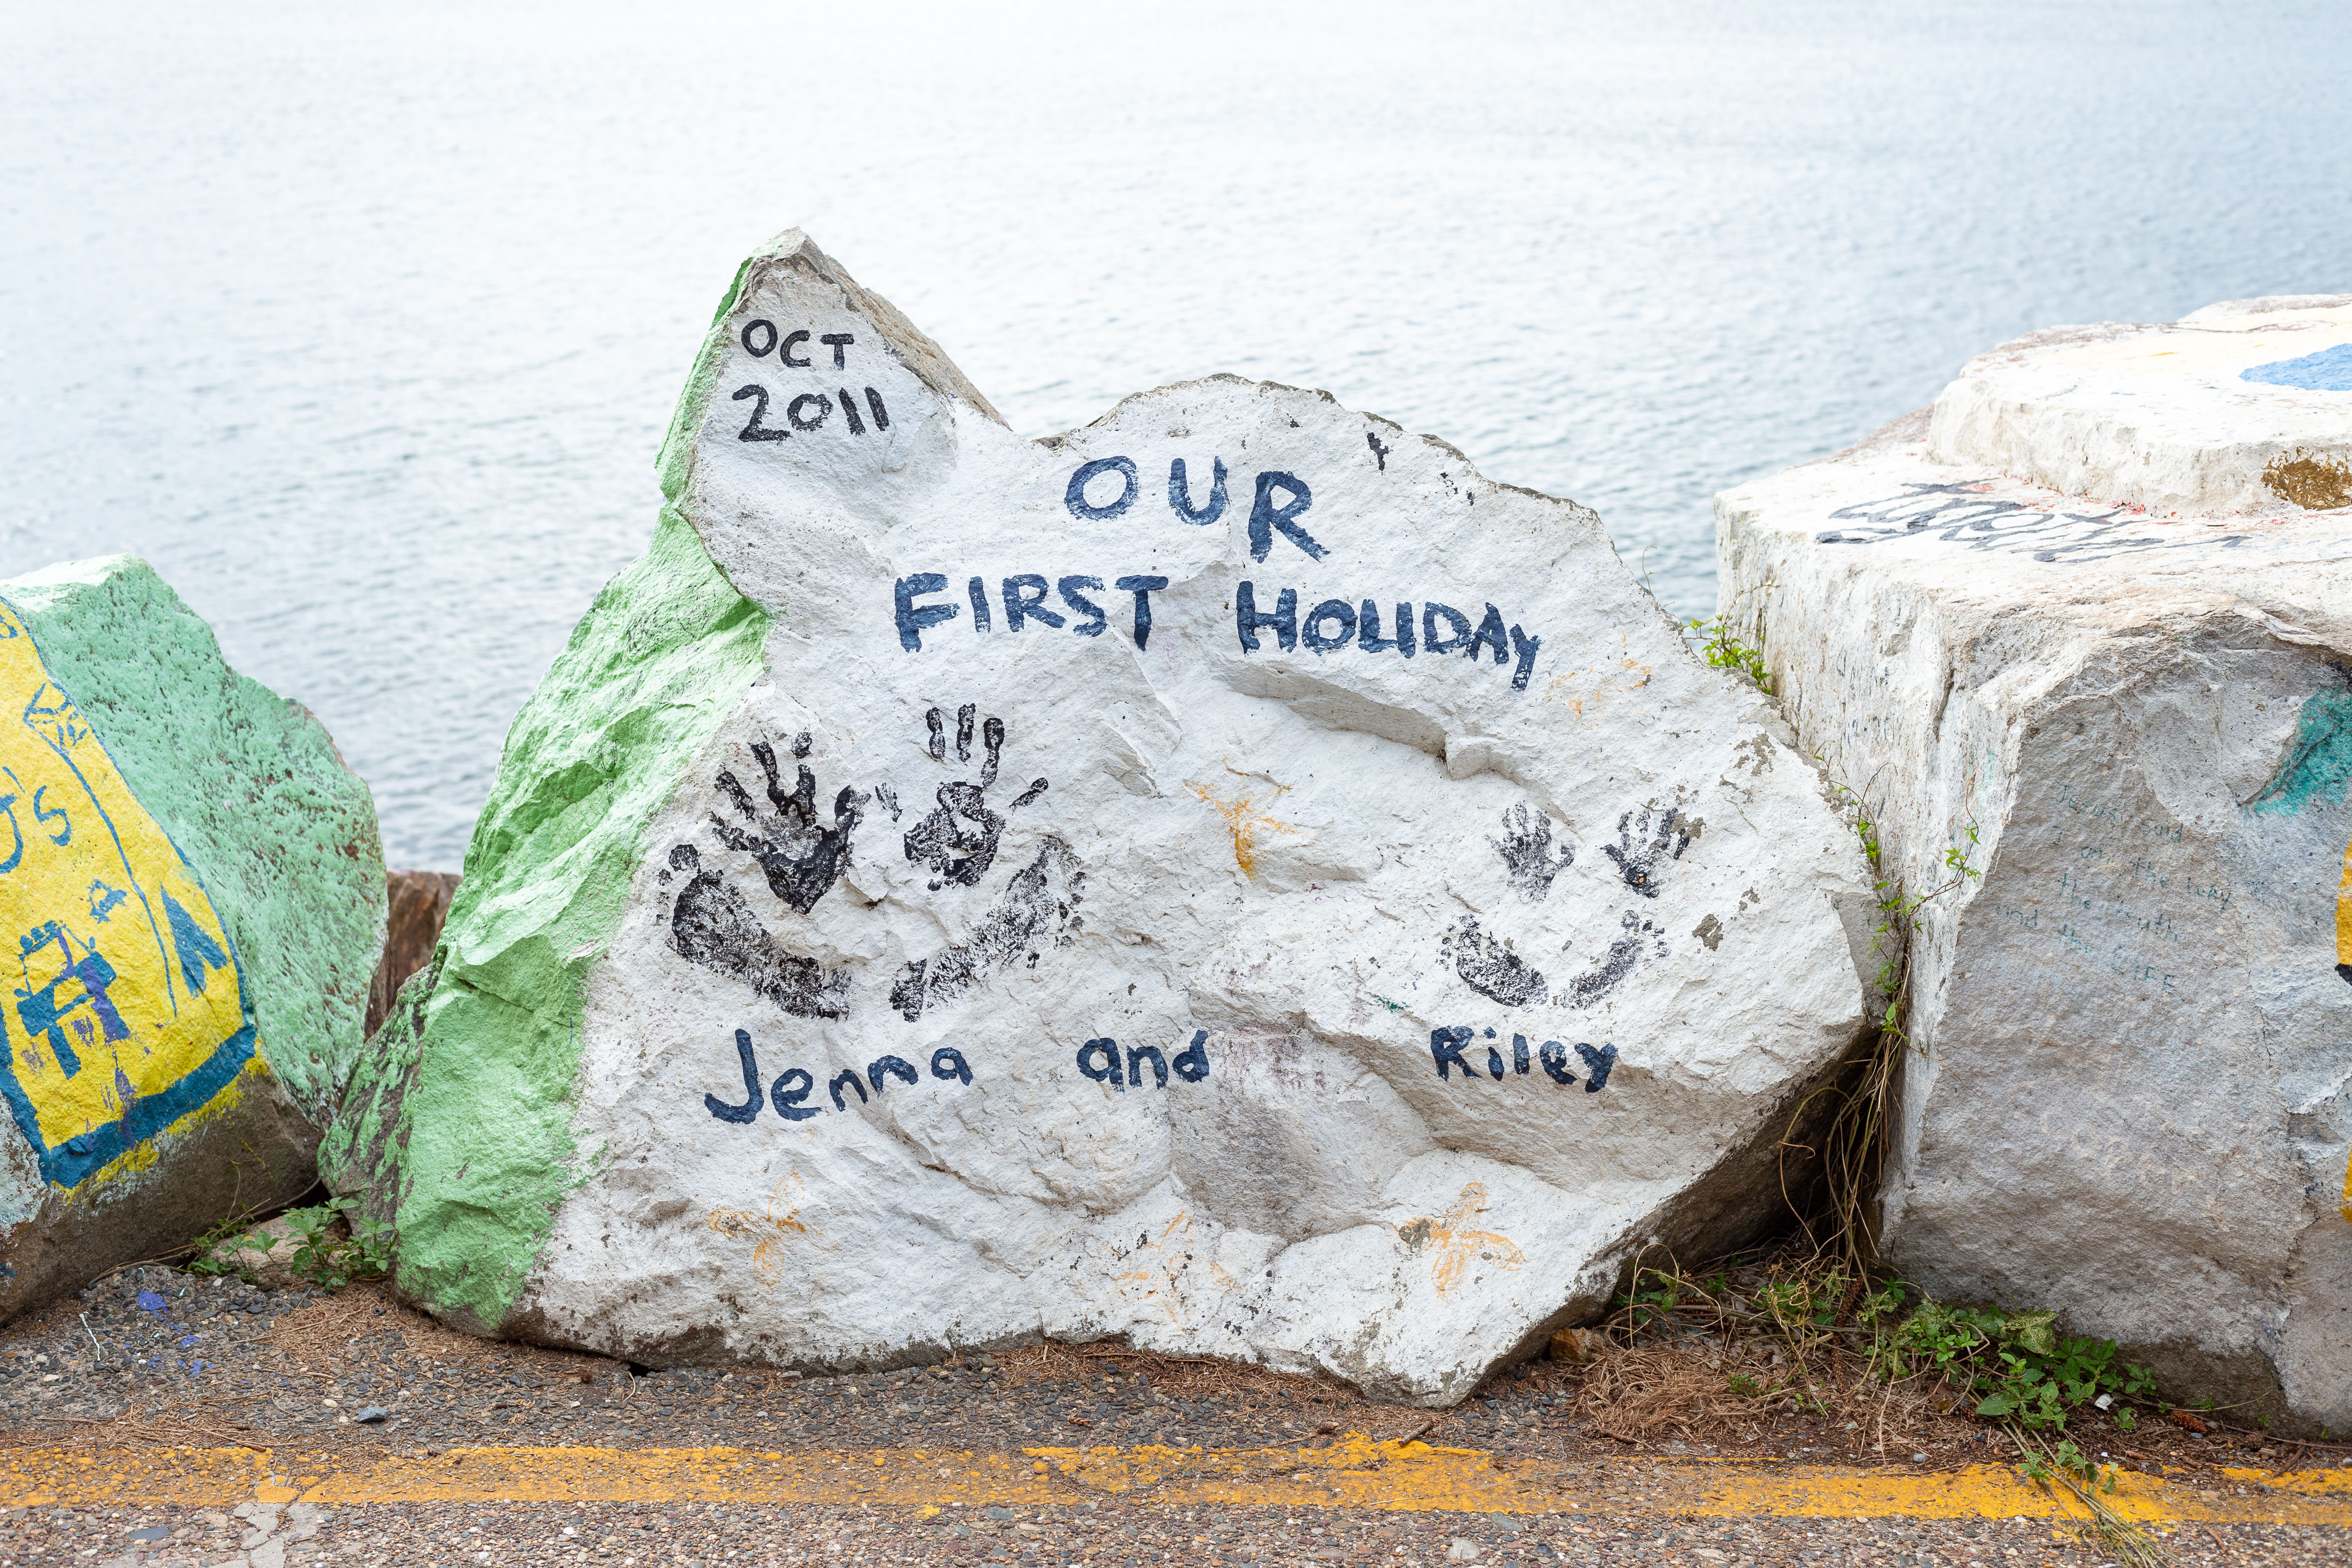 OCT
2011
OUR
FIRST HOLIDAY
Jenna and Riley
U'S
Jesus said
I am the way
the truth
and the LIFE